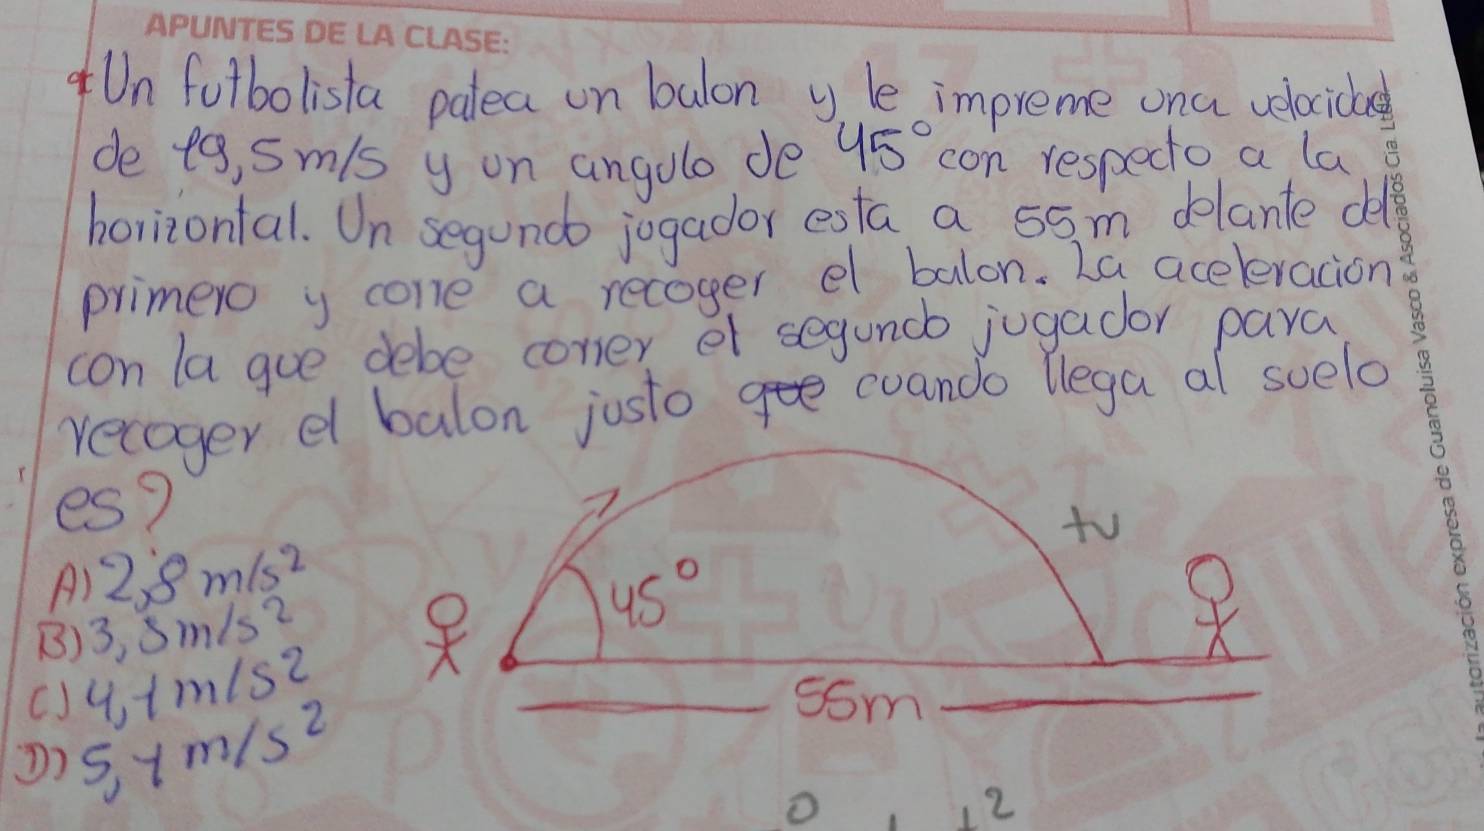 APUNTES DE LA CLASE:
Un futbolista patea un balon y le impreme una velocidad
de 19,5 m/s y un angulo de 45° con respecto a la
horizontal. Un segundo jugador esta a 55m delante del
primero y corre a recoger el balon. La aceleracion
con la que debe correr el segundo jugador para
recoger el balon justo que cuando llega al suelo
es?
A) 2,8 m/s²
B) 3,5 m/s²
C) 4,1 m/s²
D) 5,1 m/s²
45°
tv
55m
la autorización expresa de Guanoluisa Vasco & Asociados Cia. Ltda.